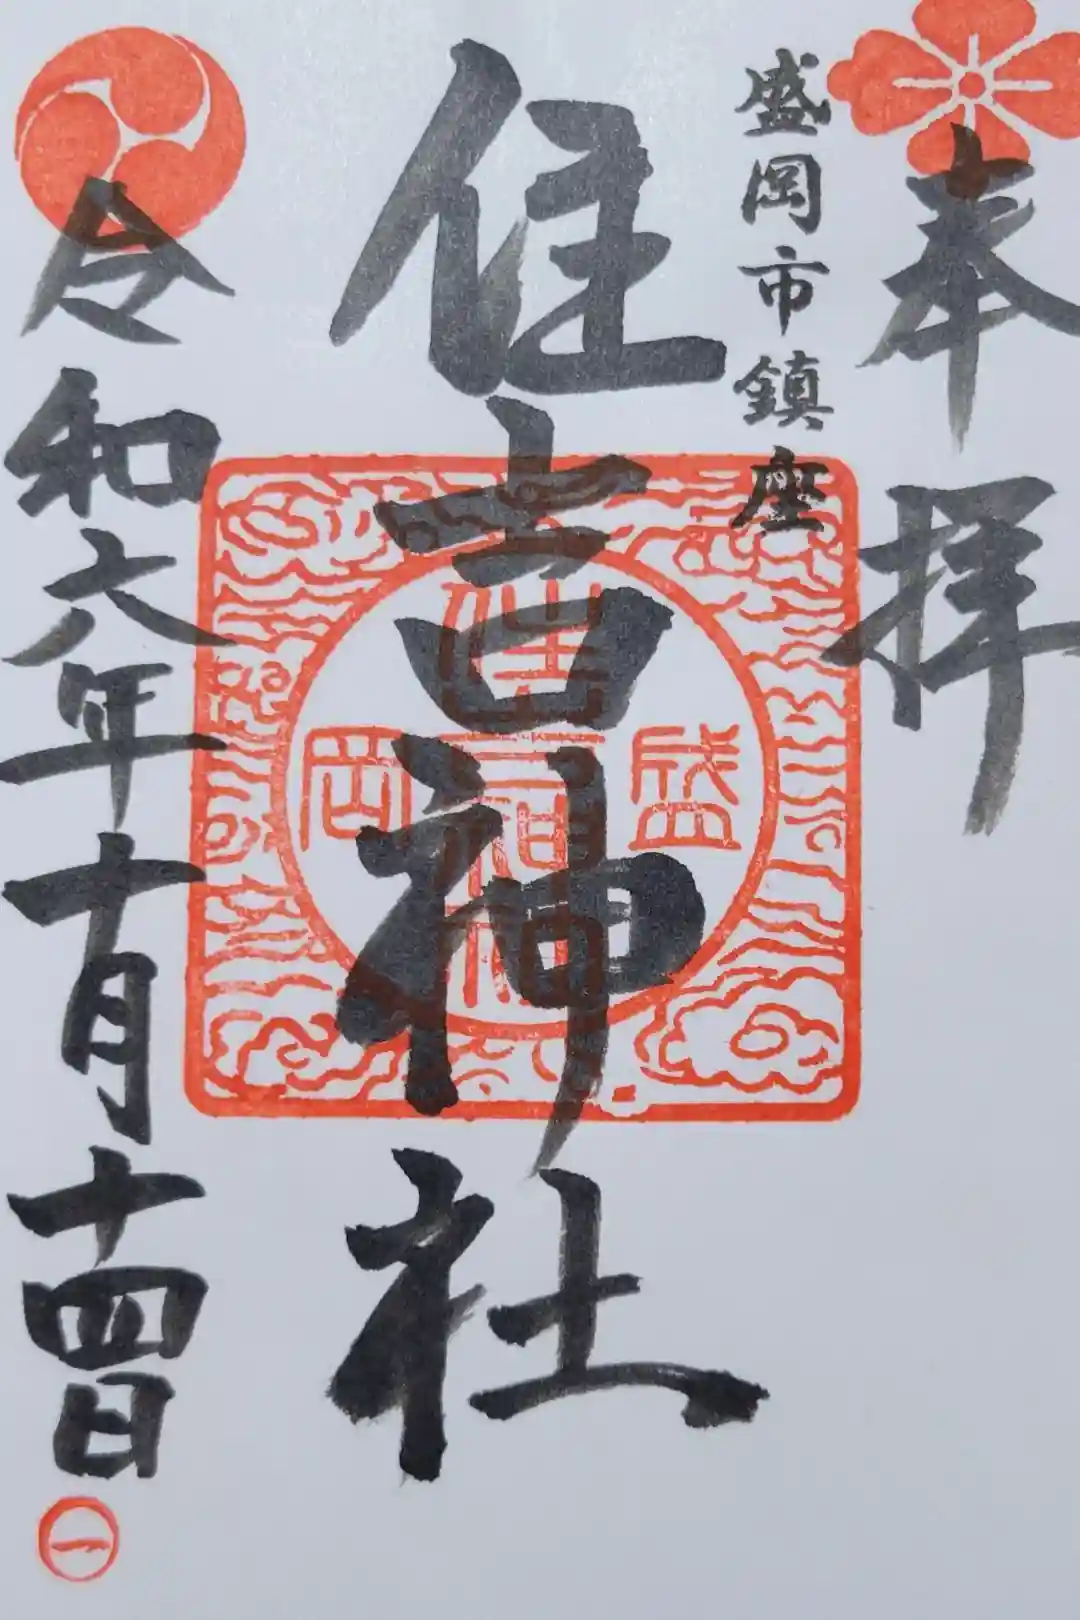 奉拝
盛岡市鎮座
住吉神社
盛岡
住吉神社
令和六年十月十四日
一